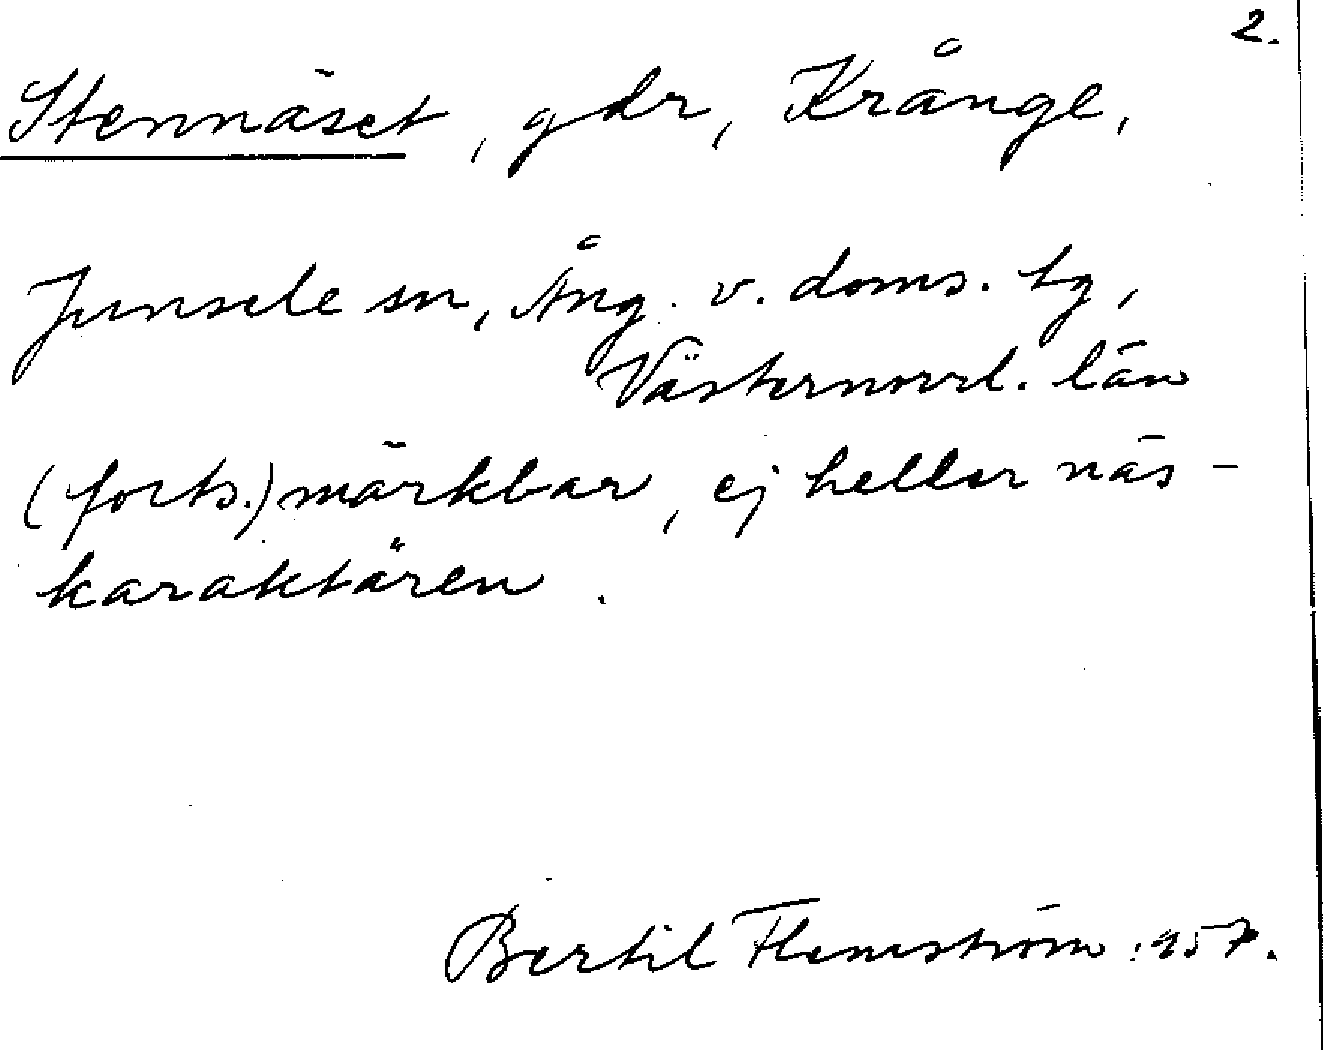 2.
Stennäset, gdr, Krånge,
Junsele sn, Ång. v. doms. tg,
Västernorrl. län
(forts.) märkbar, ej heller näs-
karaktären.
Bertil Flemström 1957.